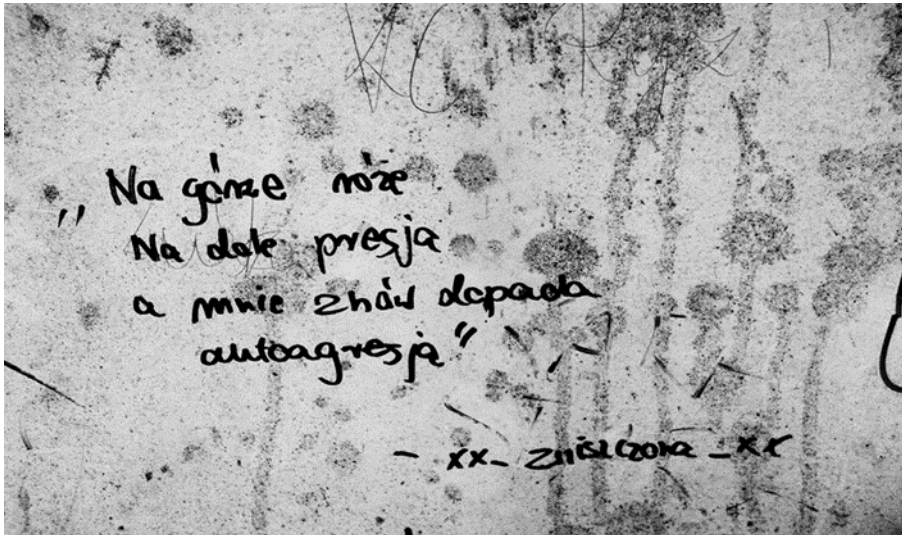 „Na górze róże
Na dole presja
a mnie znów dopada
autoagresja"
- xx_zniszczona_xx